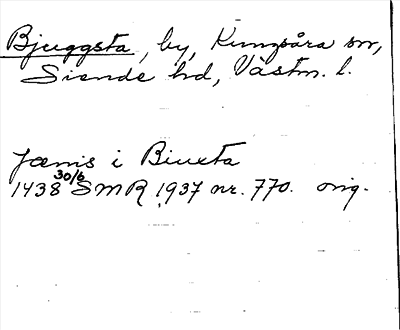 Bjuggsta, by, Kungsåra sn,
Siende hd, Västm. l.
Jœnis i Biuxta
1438 30/6 SMR 1937 nr. 770. orig.